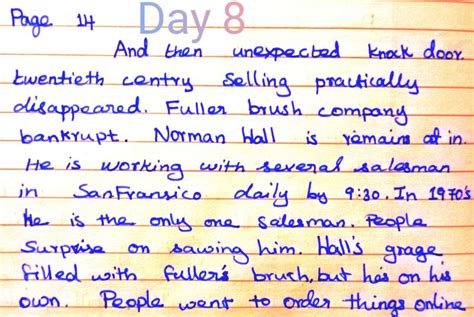 Page 14 Day 8
And then unexpected knock door.
twentieth centry selling practically
disappeared. Fuller brush company
bankrupt. Norman Hall is remains at in.
He is working with several salesman
in SanFransico daily by 9:30. In 1970's
He is the only one salesman. People
Surprise on sawing him. Hall's grage
filled with fuller's brush, but he's on his
own. People went to order things online